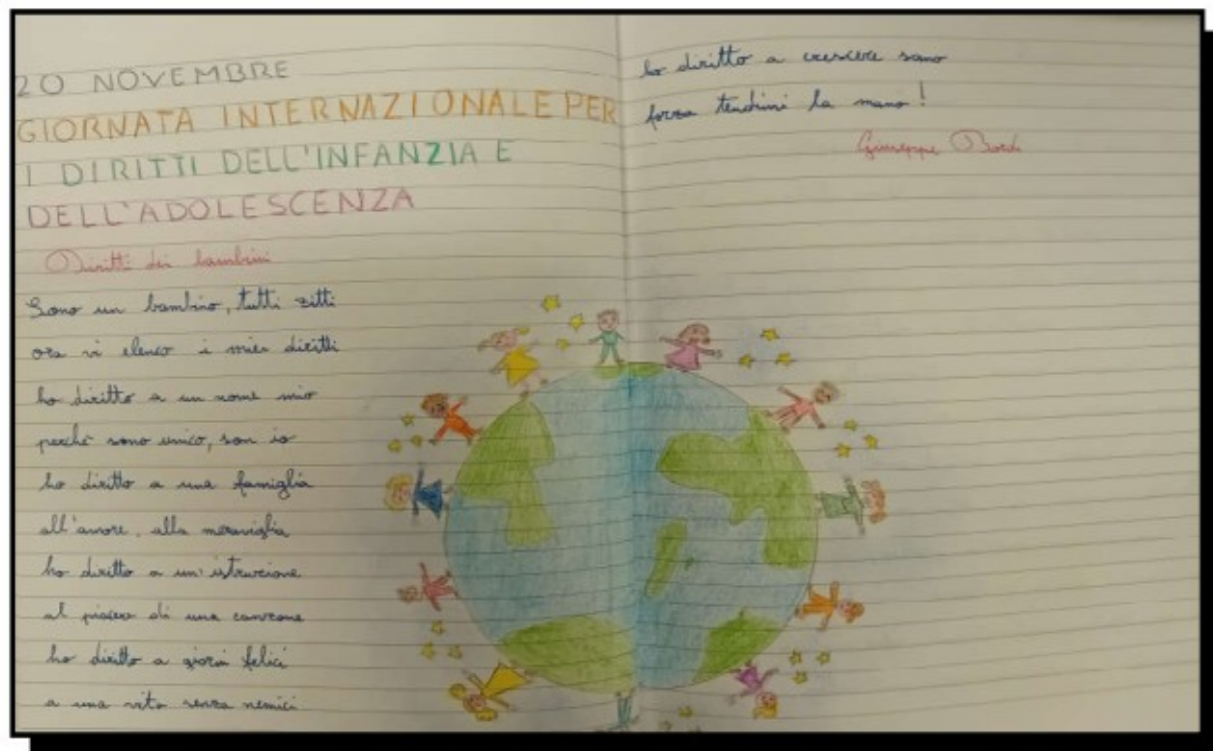 20 NOVEMBRE
GIORNATA INTERNAZIONALE PER
I DIRITTI DELL'INFANZIA E
DELL'ADOLESCENZA
Diritti dei bambini
Sono un bambino, tutti zitti
ora vi elenco i miei diritti
ho diritto a un nome mio
perché sono unico, son io
ho diritto a una famiglia
all'amore, alla meraviglia
ho diritto a un'istruzione
al piacere di una canzone
ho diritto a giorni felici
a una vita senza nemici
ho diritto a crescere sano
forza tendimi la mano!
Giuseppe Bordi